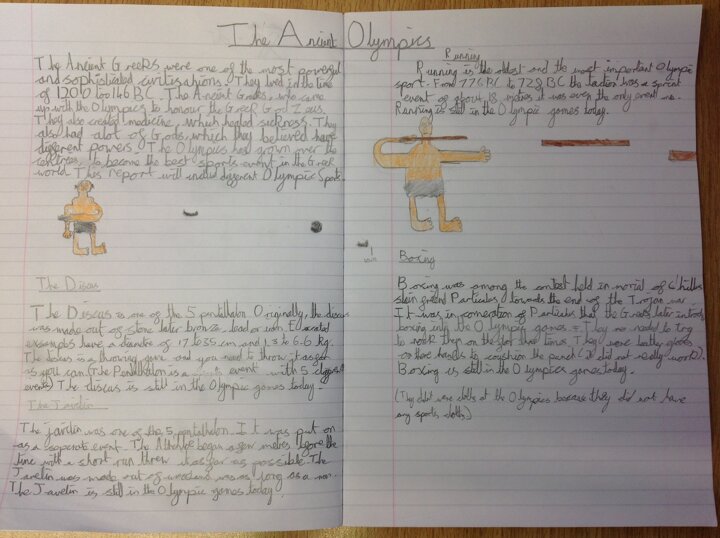 The Ancient Olympics
The Ancient Greeks were one of the most powerful
and sophisticated civilisations. They lived in the time
of 1200 to 146 BC. The Ancient Greeks, who came
up with the Olympics to honour the Greek God Zeus.
They also created medicine, which healed sickness. They
also had alot of Gods, which they believed have
different powers. The Olympics had grown over the
to become the best sports event in the Greek
world. This report will different Olympic Sports.
The Discus
The Discus is one of the 5 pentathalon Originally, the discus
was made out of stone later bronze, lead or iron.
examples have a of 17 to 35 cm and 1.3 to 6.6 kg.
The discus is a throwing game and you need to throw it as far
as you can (The Pendathalon is a event with 5
events) The discus is still in the Olympic games today.
The Javelin
The javelin was one of the 5 pentathalon. It was put on
as a seperate event. The began a few metres before the
line with a short run threw it as far as possible. The
Javelin was made out of was as long as a man.
The Javelin is still in the Olympic games today.
Running
Running is the oldest and the most important Olympic
sport. From 776 BC to 728 BC the was a sprint
event of about 18 metres it was even the only event
Running is still in the Olympic games today.
Boxing
Boxing was among the contest held in of
slain friend towards the end of the Trojan war
It was in of that the Greeks later
boxing into the Olympic games. They to try
to knock them on the at that time. They wore
on their hands to cushion the punch (it did not really work).
Boxing is still in the Olympics games today.
(They didn't wear cloths at the Olympics because they did not have
any sports cloths)